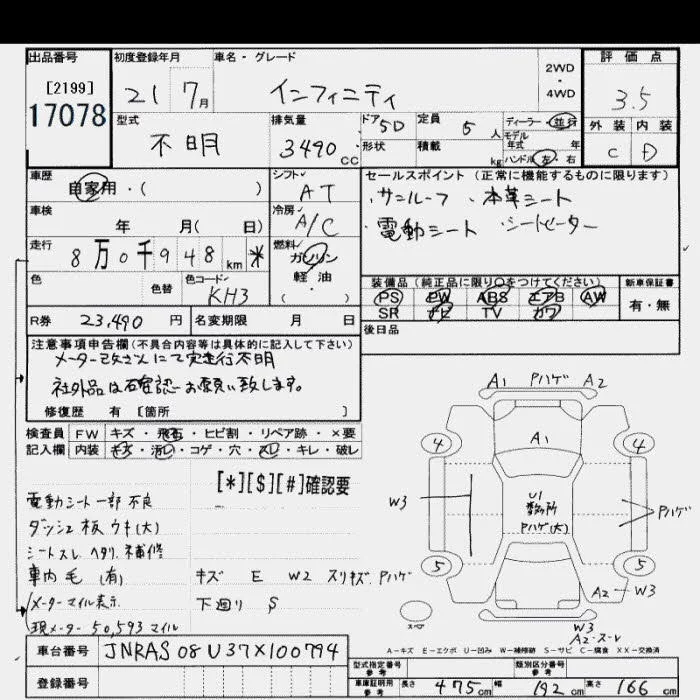 出品番号 初度登録年月 車名・グレード 評価点
[2199]
17078
21 7月 インフィニティ 2WD・4WD 3.5
型式 不明 排気量 3490cc ドア 5D 定員 5人 ディーラー・並行 外装 内装
形状 積載 kg モデル年式 年 C D
ハンドル 左・右
車歴 自家用・( ) シフト AT セールスポイント (正常に機能するものに限ります)
車検 年 月( 日) 冷房 A/C ・サンルーフ ・本革シート
・電動シート ・シートヒーター
走行 8万0千948km * 燃料 ガソリン 軽・油 ・( )
色 色替 色コード KH3 装備品 (純正品に限り○をつけてください) 新車保証書
PS PW ABS エアB AW 有・無
SR ナビ TV カワ
R券 23,490円 名変期限 月 日 後日品
注意事項申告欄 (不具合内容等は具体的に記入して下さい)
メーター改ざんにて実走行不明
社外品は石確認お願い致します。
修復歴 有 [箇所 ]
検査員 FW キズ・飛石・ヒビ割・リペア跡・×要
記入欄 内装 キズ・汚レ・コゲ・穴・スレ・キレ・破レ
[*][$][#]確認要
電動シート一部不良
ダッシュ板ウキ(大)
シートスレ ヘタリ 補修
車内毛(有) キズ E W2 スリキズ Pハゲ
メーターマイル表示 下廻り S
現メーター 50,593マイル
A1 Pハゲ A2
4 A1 4
W3 U1 Pハゲ
Pハゲ(大)
5 5
A2 W3
スペア W3
A2・スレ
A-キズ E-エクボ U-凹み W-補修跡 S-サビ C-腐食 XX-交換済
車台番号 JNRAS08U37X100794 型式指定番号 参考 類別区分番号 参考
登録番号 車庫証明用 参考 長さ 475cm 幅 192cm 高さ 166cm